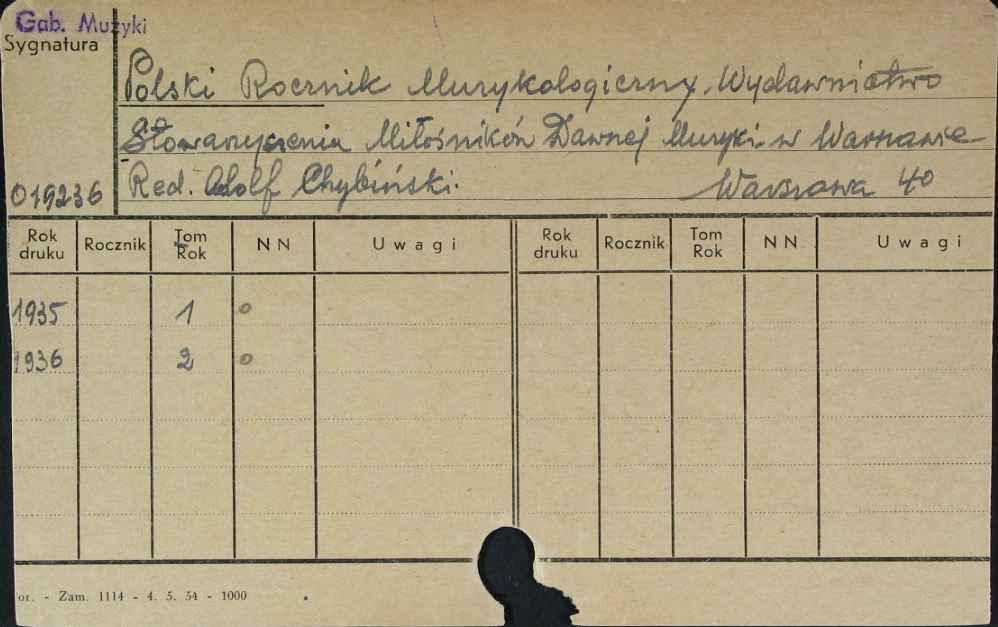 Gab. Muzyki
Sygnatura
Polski Rocznik Muzykologiczny. Wydawnictwo
Stowarzyszenia Miłośników Dawnej Muzyki w Warszawie
019236 Red. Adolf Chybiński. Warszawa 40
Rok druku Rocznik Tom Rok NN Uwagi Rok druku Rocznik Tom Rok NN Uwagi
1935 1 o
1936 2 o
or. - Zam. 1114 - 4. 5. 54 - 1000